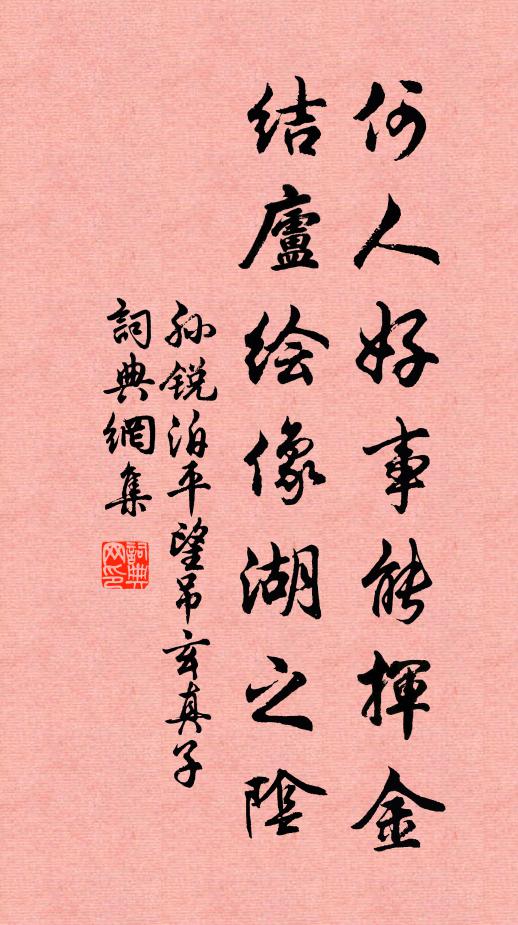 何人好事能揮金
結廬绘像湖之陰
孙锐泊平望吊玄真子
詞典網集
詞典网印